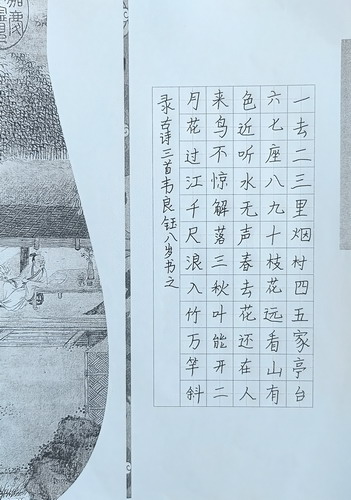 一去二三里烟村四五家亭台
六七座八九十枝花远看山有
色近听水无声春去花还在人
来鸟不惊解落三秋叶能开二
月花过江千尺浪入竹万竿斜
录古诗三首韦良钰八岁书之